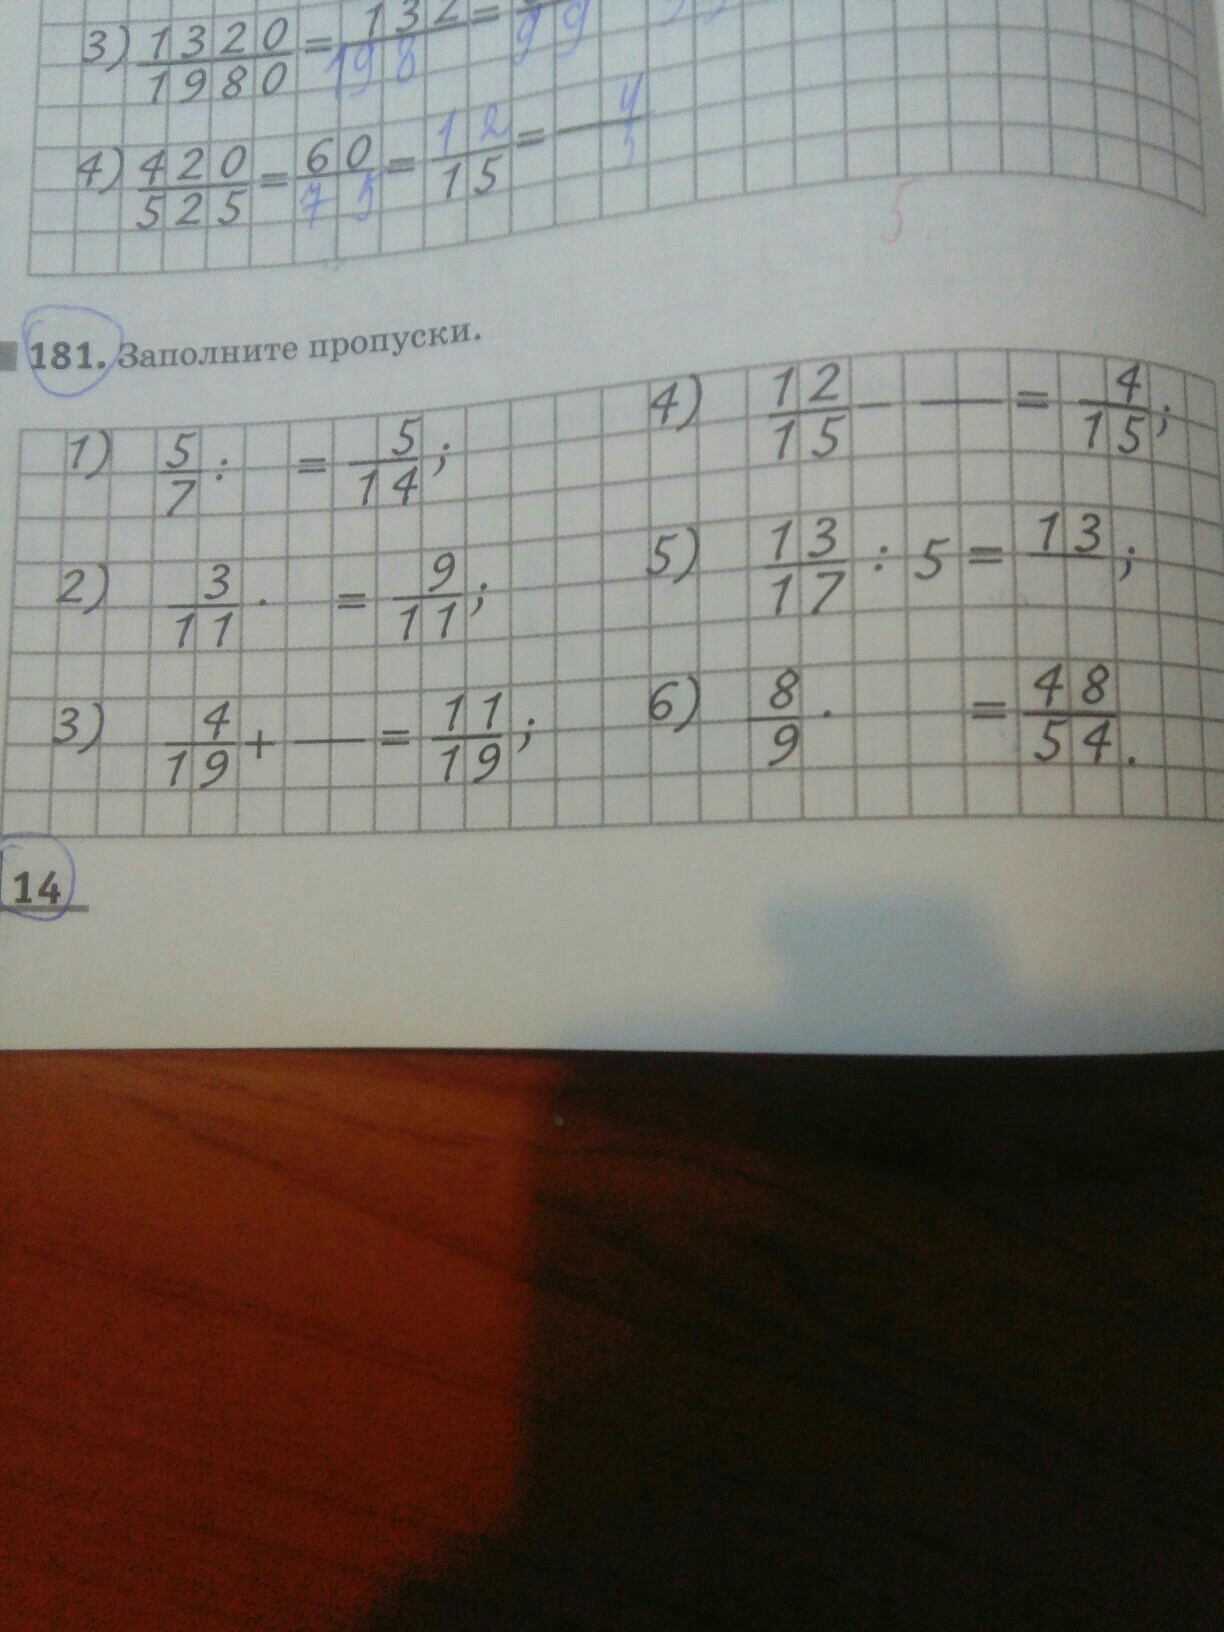 3) 1320/1980 = 132/198 = /99
4) 420/525 = 60/75 = 12/15 = 4/5
5
181. Заполните пропуски.
1) 5/7 : = 5/14;
2) 3/11 · = 9/11;
3) 4/19 + — = 11/19;
4) 12/15 − — = 4/15;
5) 13/17 : 5 = 13/ ;
6) 8/9 · = 48/54.
14